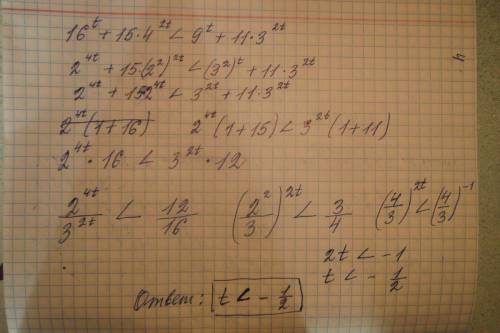 16^t + 15·4^{2t} < 9^t + 11·3^{2t}
2^{4t} + 15(2^2)^{2t} < (3^2)^t + 11·3^{2t}
2^{4t} + 15·2^{4t} < 3^{2t} + 11·3^{2t}
2^{4t}(1+16) 2^{4t}(1+15) < 3^{2t}(1+11)
2^{4t} · 16 < 3^{2t} · 12
2^{4t}/3^{2t} < 12/16 (2^2/3)^{2t} < 3/4 (4/3)^{2t} < (4/3)^{-1}
2t < -1
t < - 1/2
Ответ: t < - 1/2